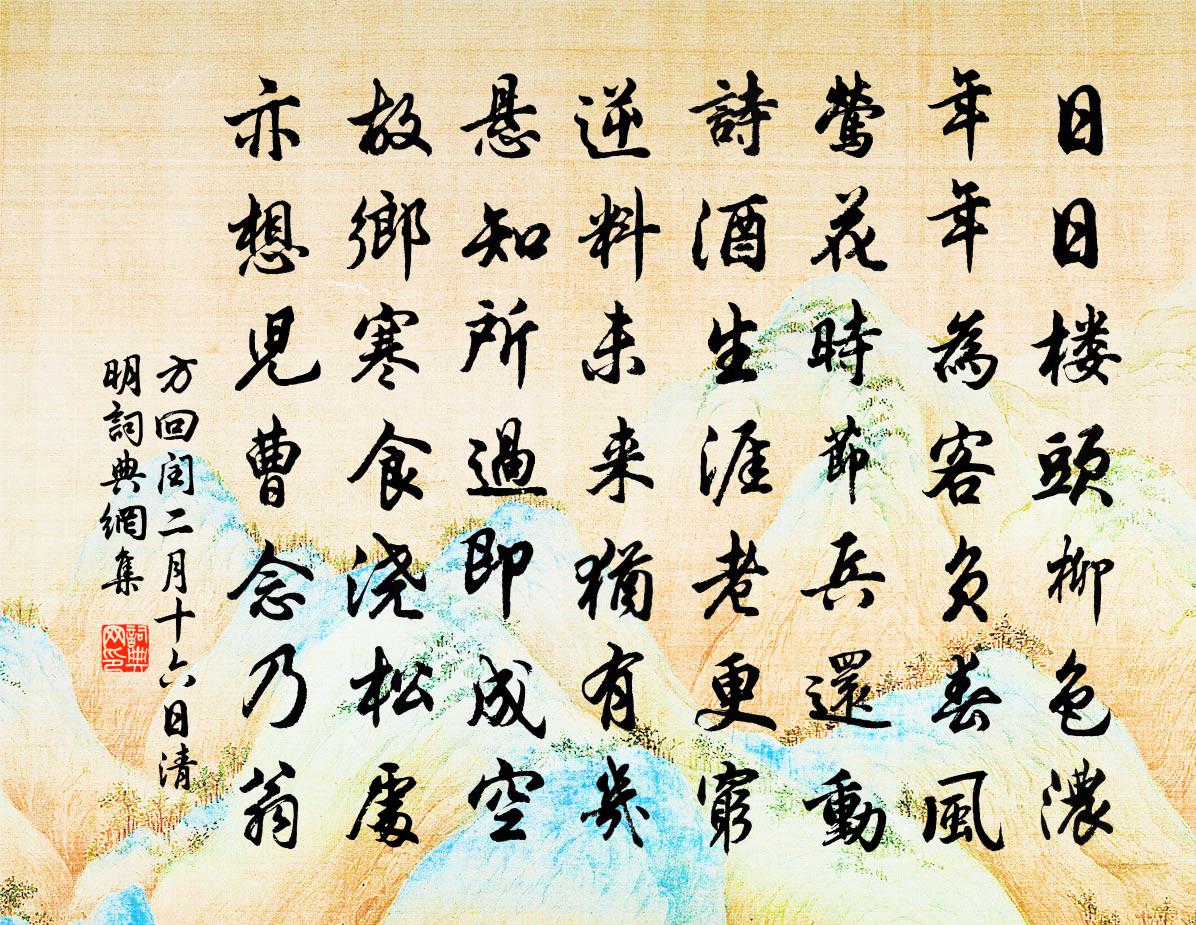 日日楼頭柳色濃
年年為客負春風
鶯花時節兵還動
詩酒生涯老更窮
逆料未来猶有幾
悬知所過即成空
故鄉寒食浇松處
亦想兒曹念乃翁
方回閏二月十六日清
明詞典網集
詞典網印